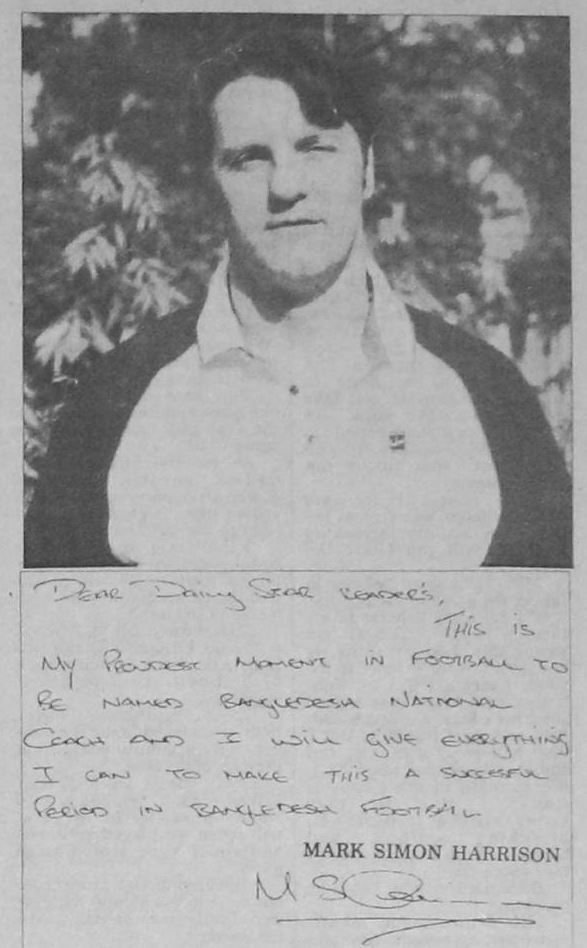 Dear Daily Star Reader's,
This is
My Proudest moment in Football to
be named Bangledesh National
Coach and I will give everything
I can to make this a sucessful
Period in Bangledesh Football
MARK SIMON HARRISON